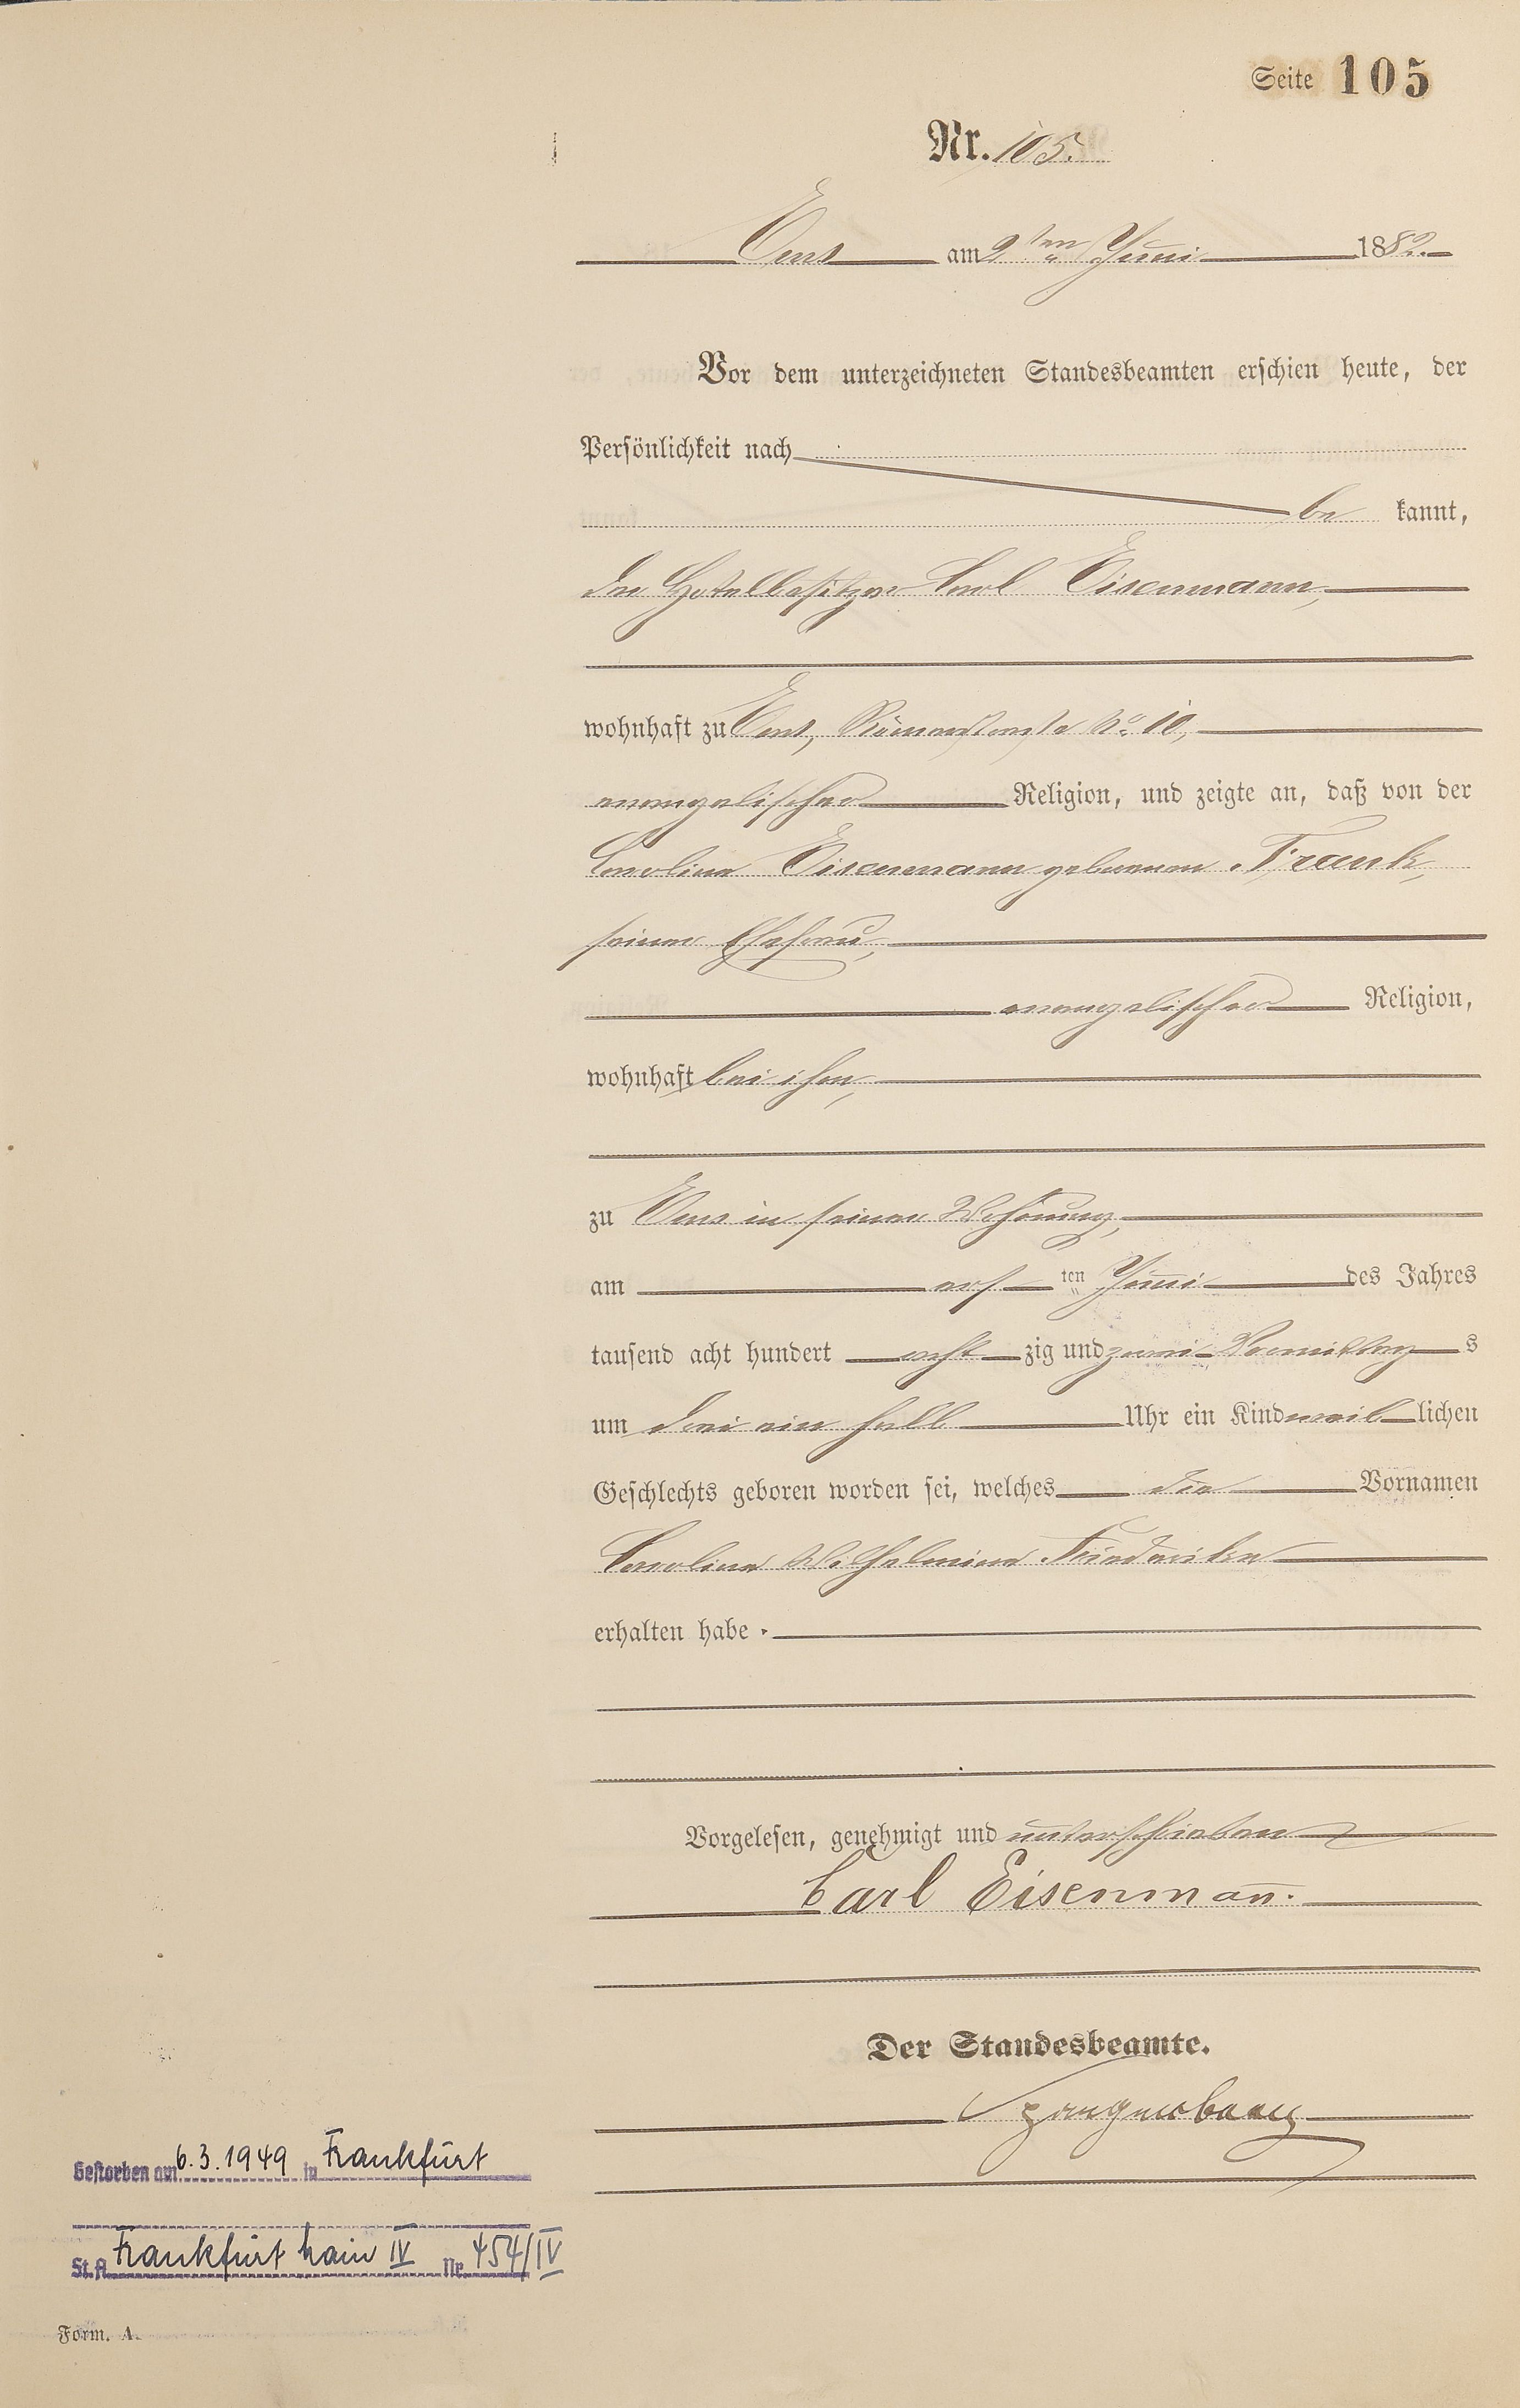 Seite 105
Nr. 105.
Ems am 9ten Juni 1882.
Vor dem unterzeichneten Standesbeamten erschien heute, der
Persönlichkeit nach
be kannt,
der Hotelbesitzer Carl Eisenmann,
wohnhaft zu Ems, Römerstraße No. 10,
evangelischer Religion, und zeigte an, daß von der
Caroline Eisenmann geborenen Frank,
seiner Ehefrau,
evangelischer Religion,
wohnhaft bei ihm,
zu Ems in seiner Wohnung,
am ten Juni des Jahres
tausend acht hundert acht zig und zwei Vormittag s
um drei ein halb Uhr ein Kind weib lichen
Geschlechts geboren worden sei, welches die Vornamen
Caroline Wilhelmine Friederike
erhalten habe.
Vorgelesen, genehmigt und unterschrieben
Carl Eisenmann.
Der Standesbeamte.
Spangenberg
Gestorben am 6.3.1949 in Frankfurt
St.A. Frankfurt Main IV Nr. 454/IV
Form. A.